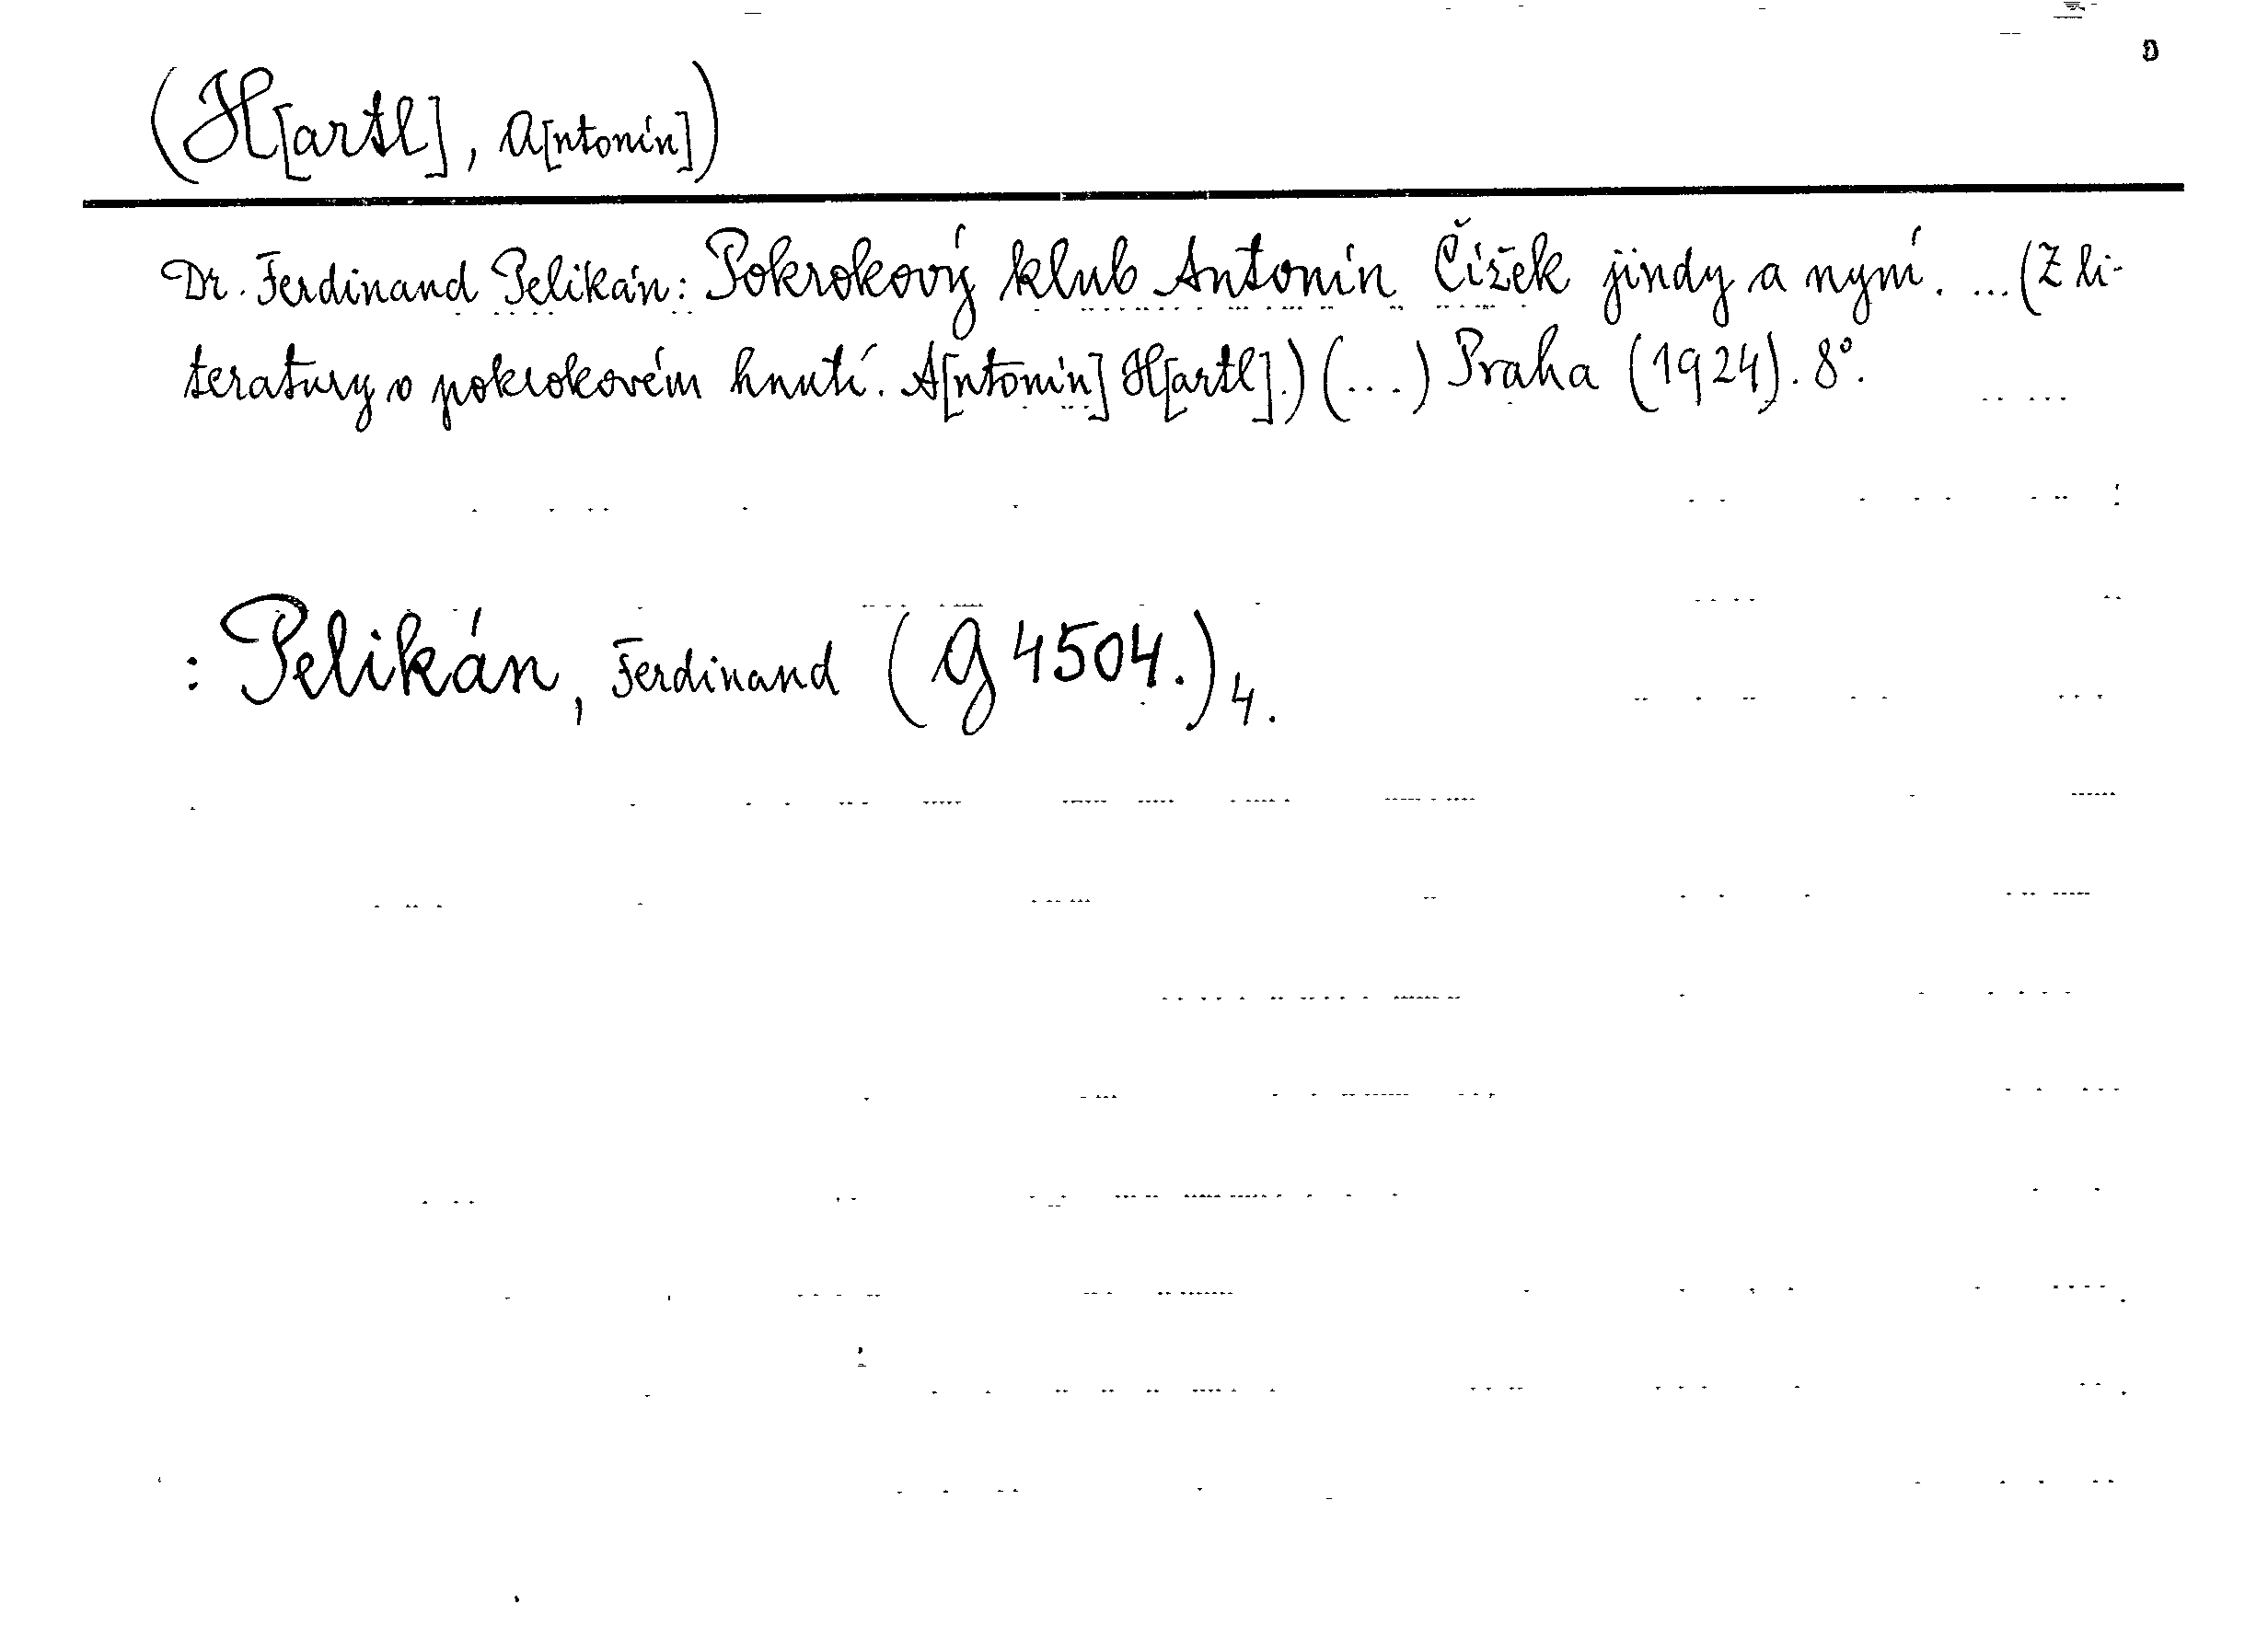 (H[artl], A[ntonín])
Dr. Ferdinand Pelikán: Pokrokový klub Antonín Čížek jindy a nyní. ... (Z li-
teratury o pokrokovém hnutí. A[ntonín] H[artl].) (...) Praha (1924). 8°.
: Pelikán, Ferdinand (G 4504.) 4.